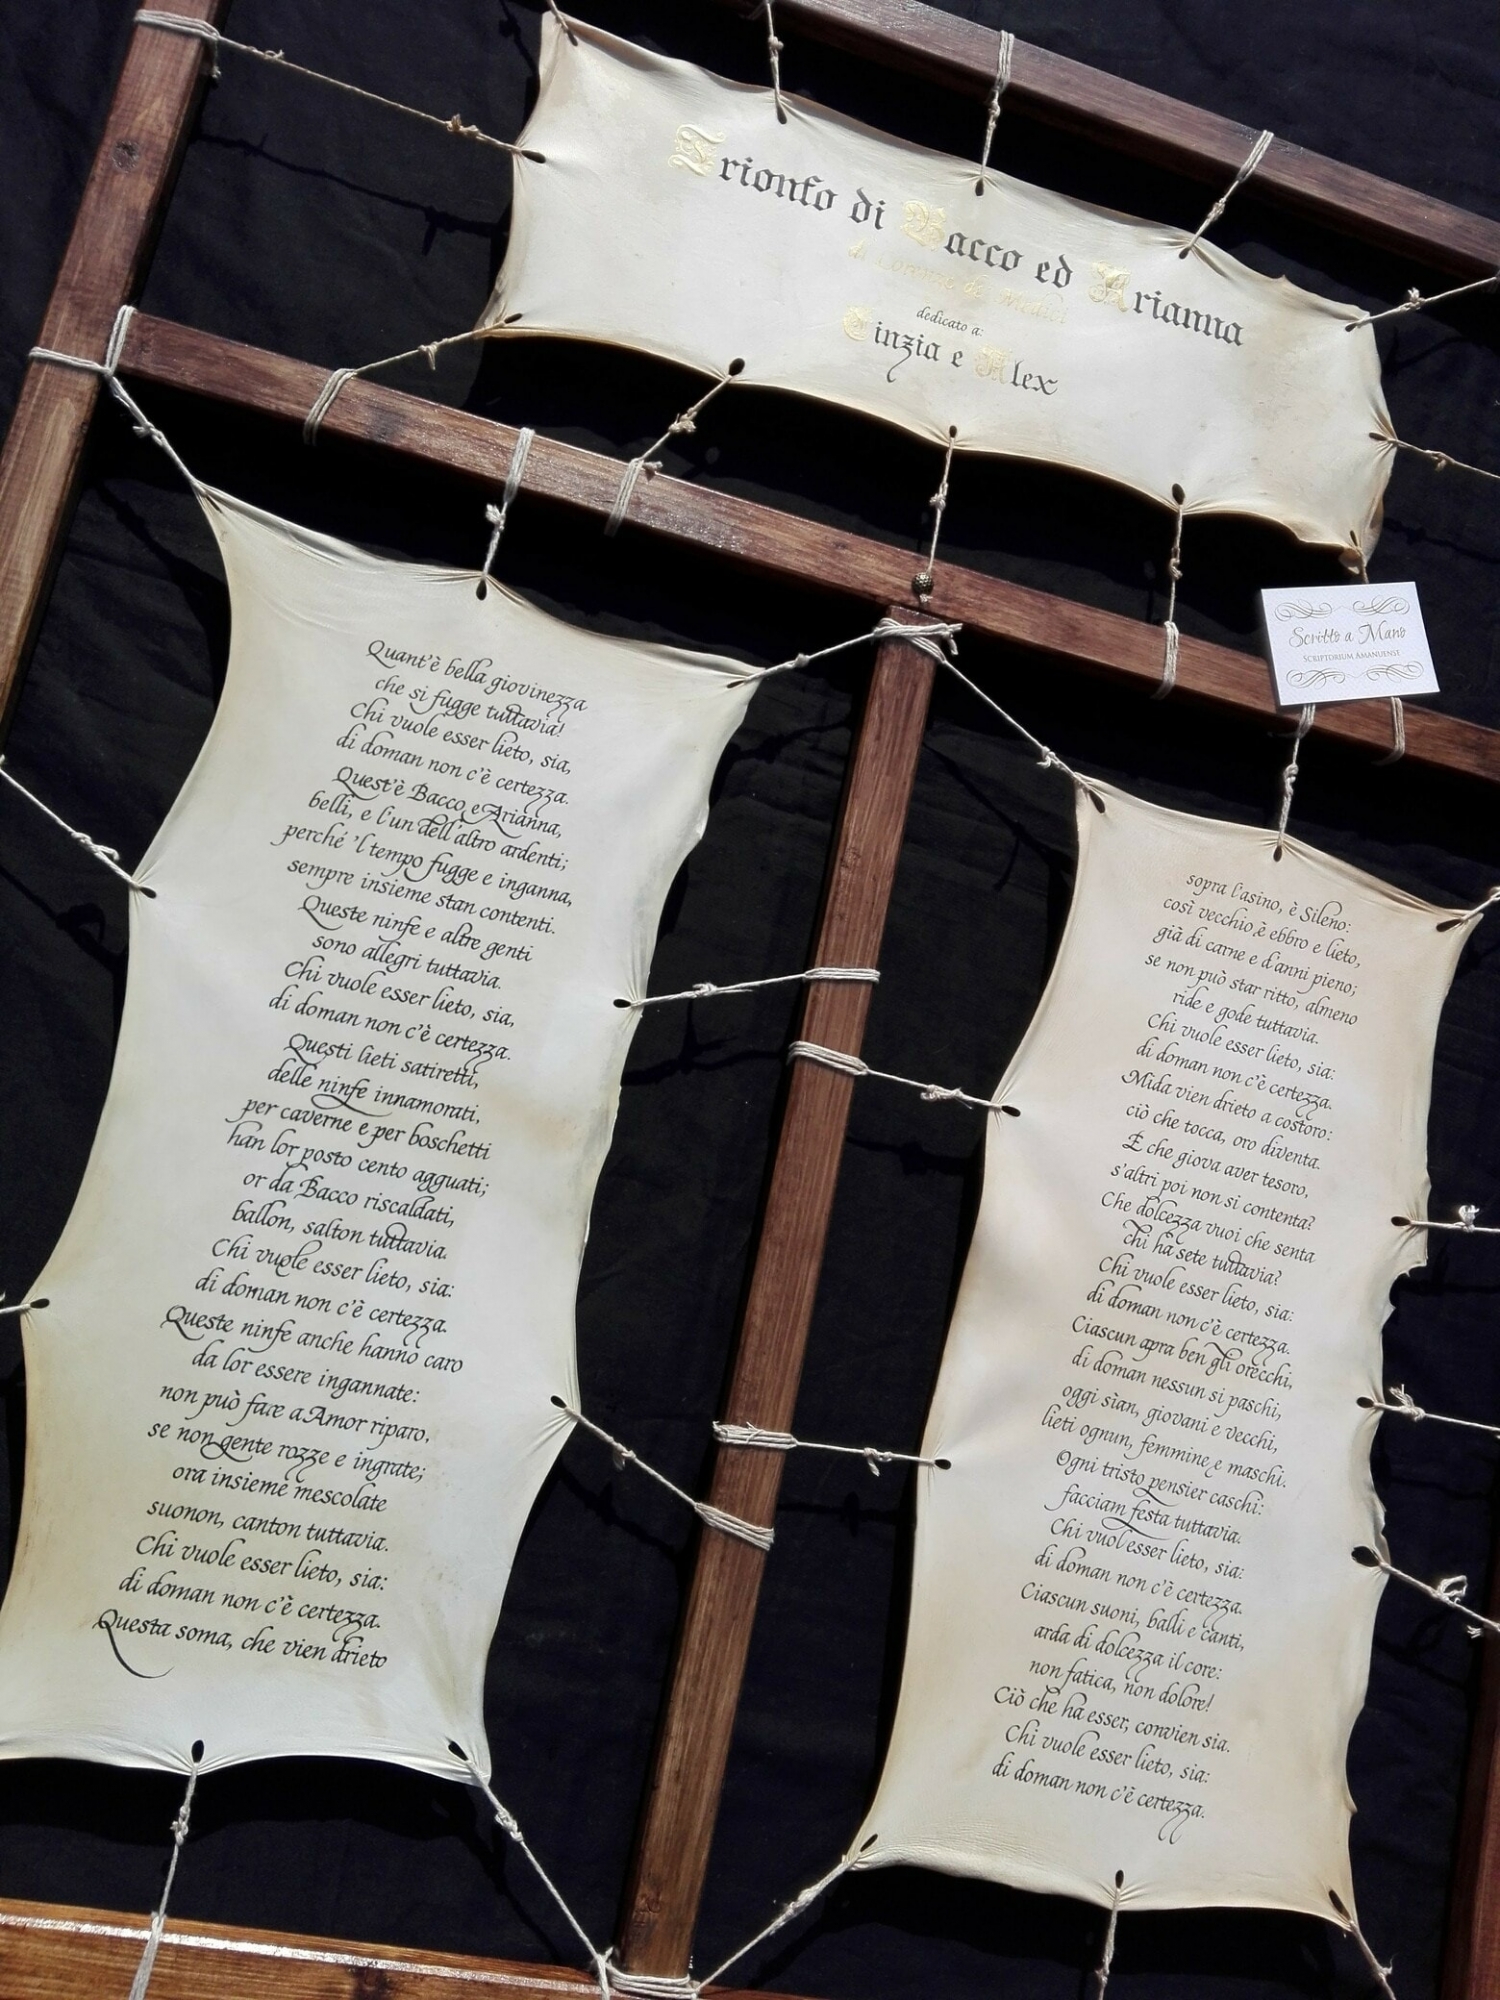 Trionfo di Bacco ed Arianna
di Lorenzo de' Medici
dedicato a:
Cinzia e Alex
Scritto a Mano
Scriptorium Amanuense
Quant'è bella giovinezza
che si fugge tuttavia!
Chi vuole esser lieto, sia,
di doman non c'è certezza.
Quest'è Bacco e Arianna,
belli, e l'un dell'altro ardenti;
perché 'l tempo fugge e inganna,
sempre insieme stan contenti.
Queste ninfe e altre genti
sono allegri tuttavia.
Chi vuole esser lieto, sia,
di doman non c'è certezza.
Questi lieti satiretti,
delle ninfe innamorati,
per caverne e per boschetti
han lor posto cento agguati;
or da Bacco riscaldati,
ballon, salton tuttavia.
Chi vuole esser lieto, sia:
di doman non c'è certezza.
Queste ninfe anche hanno caro
da lor essere ingannate:
non può fare a Amor riparo,
se non gente rozze e ingrate;
ora insieme mescolate
suonon, canton tuttavia.
Chi vuole esser lieto, sia:
di doman non c'è certezza.
Questa soma, che vien drieto
sopra l'asino, è Sileno:
così vecchio è ebbro e lieto,
già di carne e d'anni pieno;
se non può star ritto, almeno
ride e gode tuttavia.
Chi vuole esser lieto, sia:
di doman non c'è certezza.
Mida vien drieto a costoro:
ciò che tocca, oro diventa.
E che giova aver tesoro,
s'altri poi non si contenta?
Che dolcezza vuoi che senta
chi ha sete tuttavia?
Chi vuole esser lieto, sia:
di doman non c'è certezza.
Ciascun apra ben gli orecchi,
di doman nessun si paschi,
oggi sìan, giovani e vecchi,
lieti ognun, femmine e maschi.
Ogni tristo pensier caschi:
facciam festa tuttavia.
Chi vuol esser lieto, sia:
di doman non c'è certezza.
Ciascun suoni, balli e canti,
arda di dolcezza il core:
non fatica, non dolore!
Ciò che ha esser, convien sia.
Chi vuole esser lieto, sia:
di doman non c'è certezza.